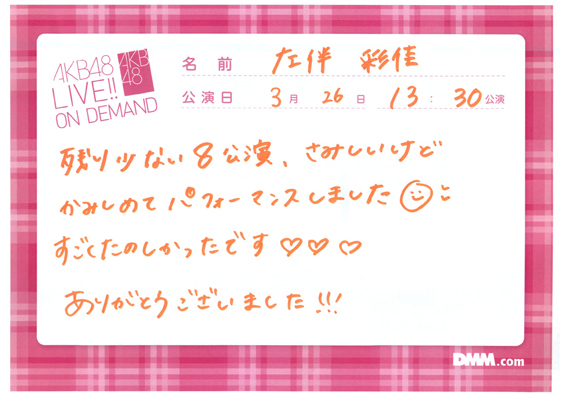 AKB48
LIVE!!
ON DEMAND
AKB
48
名前 左伴 彩佳
公演日 3月 26日 13:30公演
残り少ない8公演、さみしいけど
かみしめてパフォーマンスしました
すごくたのしかったです♡♡♡
ありがとうございました!!!
DMM.com